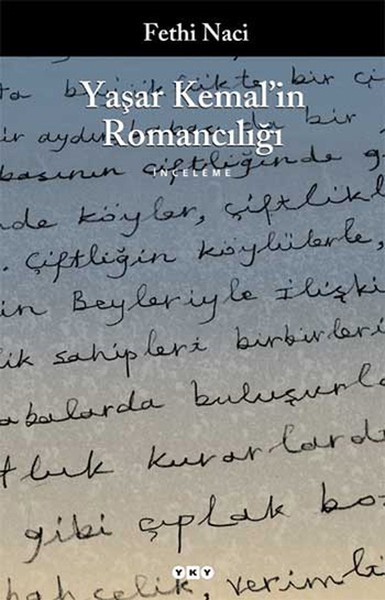 Fethi Naci
Yaşar Kemal'in
Romancılığı
İNCELEME
bir
bir aydın bir
basının çiftliğinde
nde köyler, çiftlikl
. Çiftliğin köylülerle,
in Beyleriyle ilişki
lik sahipleri birbirleri
abalarda buluşurla
tluk kurarlardı
gibi çıplak boz
bahçelik, verimli
YKY